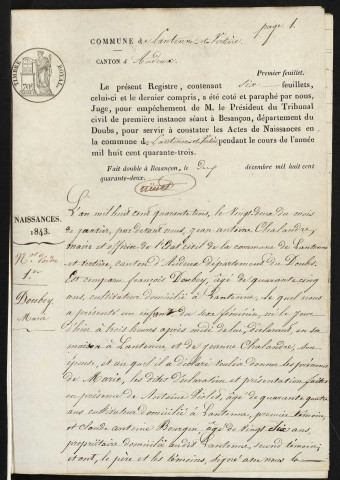 page 1.
TIMBRE ROYAL
COMMUNE de Lantenne et Vertière
CANTON d'Audeux
Premier feuillet.
Le présent Registre, contenant six feuillets,
celui-ci et le dernier compris, a été coté et paraphé par nous,
Juge, pour empêchement de M. le Président du Tribunal
civil de première instance séant à Besançon, département du
Doubs, pour servir à constater les Actes de Naissances en
la commune de Lantenne et Vertière pendant le cours de l'année
mil huit cent quarante-trois.
Fait double à Besançon, le décembre mil huit cent
quarante-deux.
NAISSANCES.
1843.
N.o d'ordre
1.er
Doubey,
Marie
L'an mil huit cent quarante trois, le vingt deux du mois
de janvier, par devant nous, jean antoine Chalandre,
maire et officier de l'Etat civil de la commune de Lantenne
et vertière, canton d'Audeux département du Doubs.
Est comparu françois Doubey, âgé de quarante cinq
ans, cultivateur domicilié à Lantenne, le quel nous
a présenté un enfant du sexe féminin, né le jour
d'hier à trois heures après midi de lui, déclarant, en sa
maison à Lantenne et de jeanne Chalandre, son
épouse, et au quel il a déclaré vouloir donner les prénoms
de Marie, les dites déclaration et présentation faites
en présence de Antoine âgé de quarante quatre
ans cultivateur domicilié à Lantenne, premier témoin,
et claude antoine âgé de vingt six ans,
propriétaire domicilié audit Lantenne, second témoin,
et ont, le père et les témoins, signé avec nous le